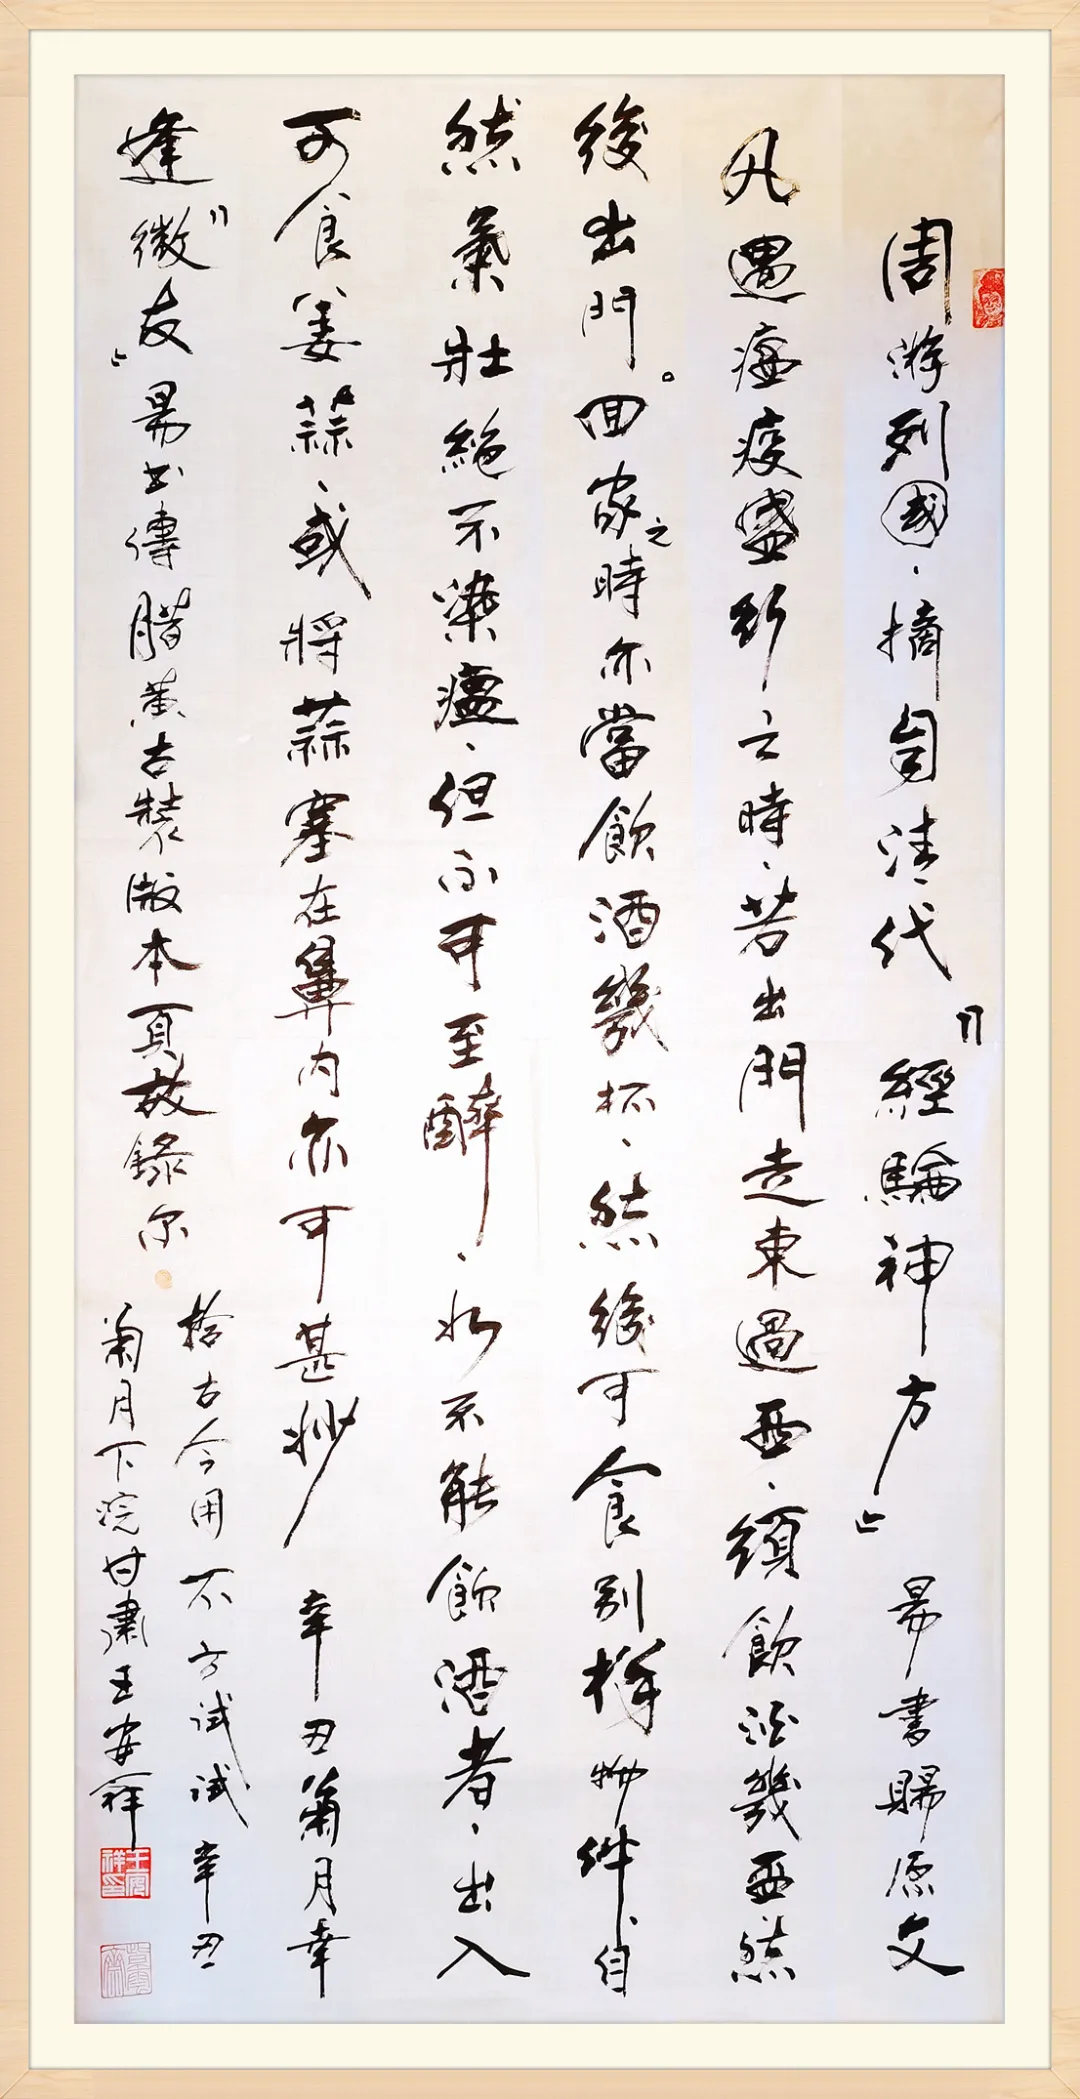 周游列國、摘自清代『經驗神方』易書賜原文
凡遇瘟疫盛行之時、若出門走東過西、須飲酒幾西然
後出門。回家之時亦當飲酒幾杯、然後可食別樣物件自
然氣壯絕不染瘟、但不可至醉、如不能飲酒者、出入
可食姜蒜、或將蒜塞在鼻內亦可甚妙 辛丑菊月幸
逢『微友』易書傳腊黃古裝散本頁故錄尔
拾古今用不方試試 辛丑
菊月下浣甘肅王安祥